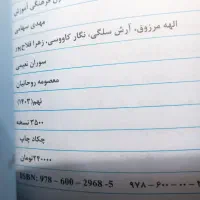 ون فرهنگی آموزش
مهدی سهامی
الهه مرزوق، آرش سلگی، نگار کاووسی، زهرا فلاح‌پور
سوران نعیمی
معصومه روحانیان
نهم(۱۴۰۳)
۳۵۰۰ نسخه
چکاد چاپ
۲۴۰۰۰۰تومان
ISBN: 978 - 600 - 2968 -5
۹۷۸ - ۶۰۰ - ۰۰ - ۲